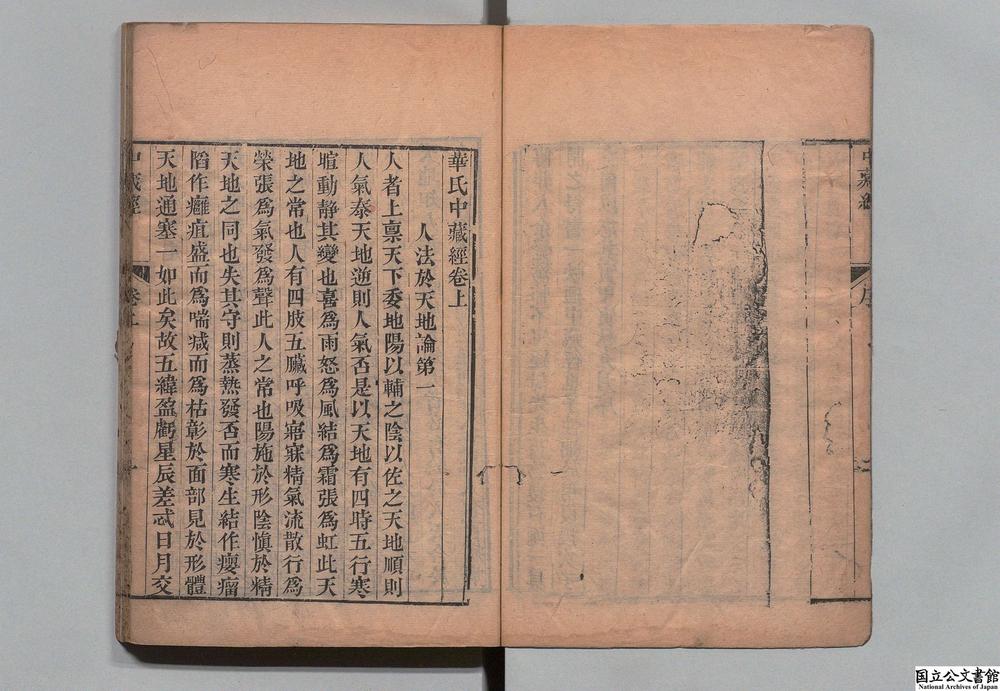 華氏中藏經卷上
人法於天地論第一
人者上禀天下委地陽以輔之陰以佐之天地順則
人氣泰天地逆則人氣否是以天地有四時五行寒
暄動靜其變也喜爲雨怒爲風結爲霜張爲虹此天
地之常也人有四肢五臟呼吸寤寐精氣流散行爲
榮張爲氣發爲聲此人之常也陽施於形陰愼於精
天地之同也失其守則蒸熱發否而寒生結作癭瘤
陷作癰疽盛而爲喘减而爲枯彰於面部見於形體
天地通塞一如此矣故五緯盈虧星辰差忒日月交
中藏經
卷上
国立公文書館
National Archives of Japan